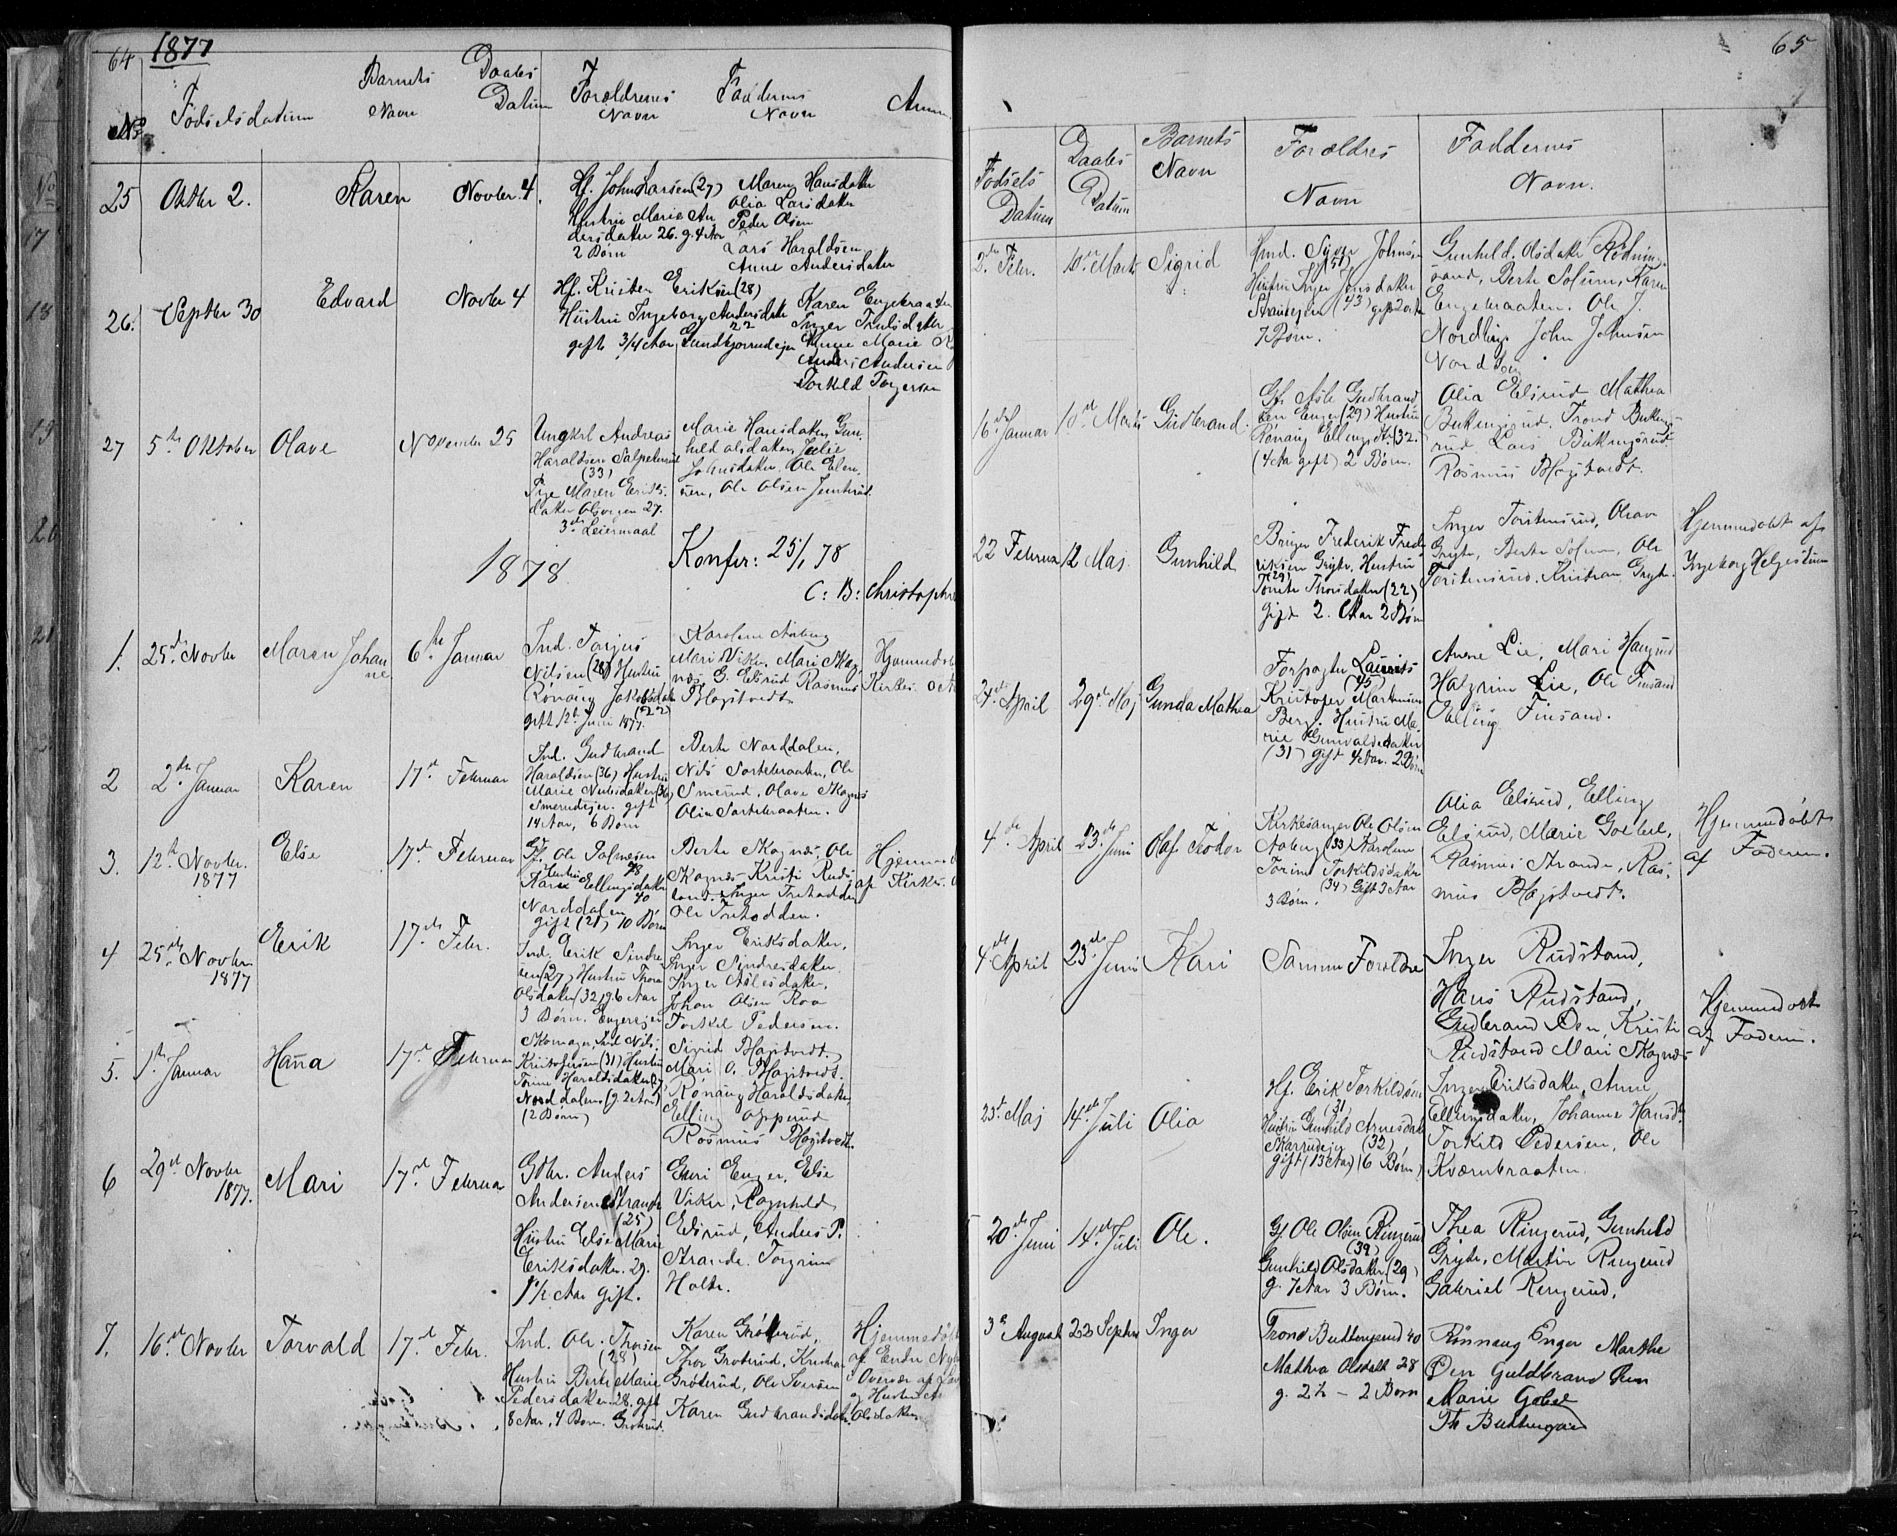 64 1877
No Fødselsdatum Barnets Navn Daabs Datum Forældrenes Navn Faddernes Navn Anm
25 Oktbr 2. Karen Novbr. 4.
Hf. John Larsen (27)
Hustru Marie An
dersdatter 26. g. 4 Aar
2 Børn
Maren Hansdatter
Olia Larsdatter
Peder Olsen
Lars Haraldsen
Anne Andersdatter
26. Septbr 30 Edvard Novbr 4
Hf. Kristen Eriksen (28)
Hustru Ingeborg Andersdatter
22
gift 3/4 Aar
Karen Engebraaten
Inger Trulsdatter
Anne Marie
Anders Andersen
Torkild Torgersen
27 5te Oktober Olave November 25
Ungkrl Andreas
Haraldsen
(33)
Pige Maren Eriks
datter 27.
3die Leiermaal
Marie Hansdatter, Gun
hild Olsdatter, Julie
Johnsdatter, Ole Elen
sen, Ole Olsen
1878
Konfer: 25/1 78
C: B: Christoph
1. 25de Novbr Maren Johan
ne 6te Januar
Ind. Torgus
Nilsen (28) Hustru
Rønaug Jakobsdatt
(22)
gift 12te Juni 1877.
Karoline Aaberg
Mari Viker, Mari Skag
næs, G. Elsrud Rasmus
Hjemmedøbt
2 2den Januar Karen 17de Februar
Ind. Gudbrand
Haraldsen (36) Hustru
Marie
gift
14 Aar, 6 Børn
Berte Norddalen,
Nils Sortebraaten, Ole
Smerud, Olave Skagnæs
Olia Sortebraaten.
3. 12te Novbr.
1877 Else 17de Februar
Gf. Ole
Hustru
Karen Ellingsdatter
40
Norddalen
gift (21) 10 Børn
Berte Skagnæs, Ole
Skagnæs Kristi Ruds
tand. Inger
Ole
Hjemmed
af Kirkes.
4 25de Novbr.
1877 Erik 17de Febr.
Ind. Erik Sindre
sen (27) Hustru Thora
Olsdatter (32) g. 6 Aar
3 Børn.
Inger Eriksdatter,
Inger Sindresdatter
Inger Aslesdatter,
Johan Olsen Roa
Torkel Pedersen.
5. 1ste Januar Hanna 17de Februar
Skomager, Ind. Nils
Kristofersen (31) Hustru
Tonne Haraldsdatter
Norddalen (g. 2 Aar)
(2 Børn)
Sigrid
Mari O.
Rønaug Haraldsdatter
Elling
Rasmus
6 29de Novbr
1877. Mari 17de Februar
Gbr. Anders
Andersen Strande
(25)
Hustru Else Marie
Eriksdatter. 29.
1½ Aar gift.
Guri Enger, Else
Viker, Ragnhild
Elsrud, Anders P.
Strande. Torgrim
Holte.
7. 16de Novbr Torvald 17de Febr.
Ind. Ole Thorsen
(28)
Hustru Berte Marie
Pedersdatter 28. gift
8 Aar, 4 Børn.
Karen Grøterud,
Thor Grøterud, Kristian
Grøterud, Ole Iversen
Karen Gudbrandsdatter
Hjemmedøbt
af Endre
Overvær af
og Hustru
Olsdatter
65
Fødsels Datum Daabs Datum Barnets Navn Forældres Navn Faddernes Navn.
2den Febr. 10de Marts Sigrid
Hmd. Syver Johnsen
(51)
Hustru Inger Jonsdatter
(43)
7 Børn.
Gunhild Olsdatter
Berte Solum, Karen
Engebraaten. Ole J.
John Johnsen
16de Januar 10de Marts Gudbrand.
Gf. Asle Gudbrand
sen Enger (29) Hustru
Rønaug Ellingsdtr (32.
(4 Aar gift) 2 Børn.
Olia Elsrud Mathea
Trond
rud Lars
Rasmus
22 Februar 12 Maj Gunhild
Bruger Frederik Frede
riksen Gryte. Hustru
(29)
Thorsdatter (22)
Gift 2. Aar 2 Børn
Inger Torstensrud, Olave
Gryte, Berte Solum, Ole
Torstensrud. Kristian Gryte.
Hjemmedøbt af
Ingeborg Helgestuen
24de April 29de Maj Gunda Mathea
Forpagter Laurits
(45)
Kristofer Martinius
Berg. Hustru Ma
rie Gunvaldsdatter
(31) gift 4 Aar. 2 Børn
Anne Lie, Mari Haugrud
Halgrim Lie, Ole Finsand
Elling Finsand.
4de April 23de Juni Olaf Teodor
Kirkesanger Ole Olsen
Aaberg (33) Karoline
Torine Torkildsdatter
(34) Gift 3 Aar
3 Børn.
Olia Elsrud, Elling
Elsrud, Marie Goebel,
Rasmus Strande, Ras,
mus
Hjemmedøbt
af Faderen.
4de April 23de Juni Kari Samme Forældre
Inger Rudstand,
Hans Rudstand,
Gudbrand Øen, Kristi
Rudstand Mari Skagnæs
Hjemmedøbt
af Faderen.
25de Maj 14de Juli Olia
Hf. Erik Torkildsen
(31
Hustru Gunhild Arnesdatter
(32)
gift (13 Aar) (6 Børn)
Inger Eriksdatter, Anne
Ellingsdatter, Johanne Hansdtr
Torkild Pedersen, Ole
Kværnbraaten
20de Juni 14de Juli Ole.
Gf. Ole Olsen Ringerud
(39)
Gunhild Olsdatter (29)
g. 7 Aar 3 Børn.
Thea Ringerud, Gunhild
Gryte, Martin Ringerud
Gabriel Ringerud,
3e August 22 Septbr Inger
Trond 40
Mathea Olsdatt 28
g. 2 – 2 Børn
Rønnaug Enger Marthe
Øen Guldbrand Øen
Marie Gøbel